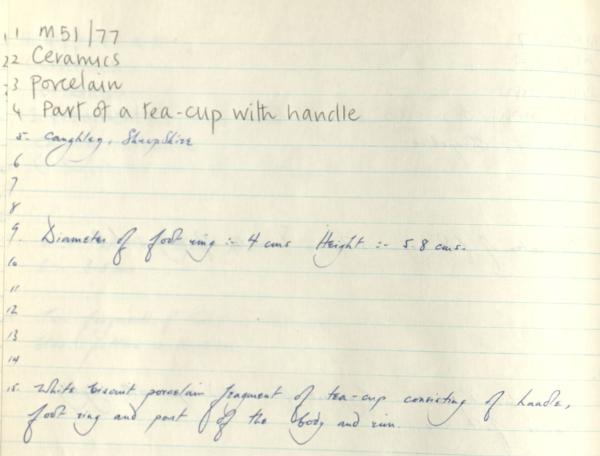 1 M51/77
2 Ceramics
3 Porcelain
4 Part of a tea-cup with handle
5. Caughley, Shropshire
6
7
8
9. Diameter of foot ring :- 4 cms Height :- 5.8 cms.
10
11
12
13
14
15. White biscuit porcelain fragment of tea-cup consisting of handle,
foot ring and part of the body and rim.